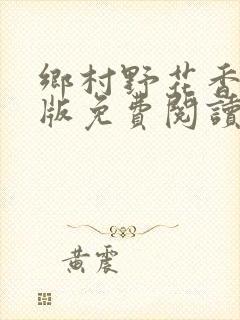 鄉村野花香
版免費閱讀
黃震